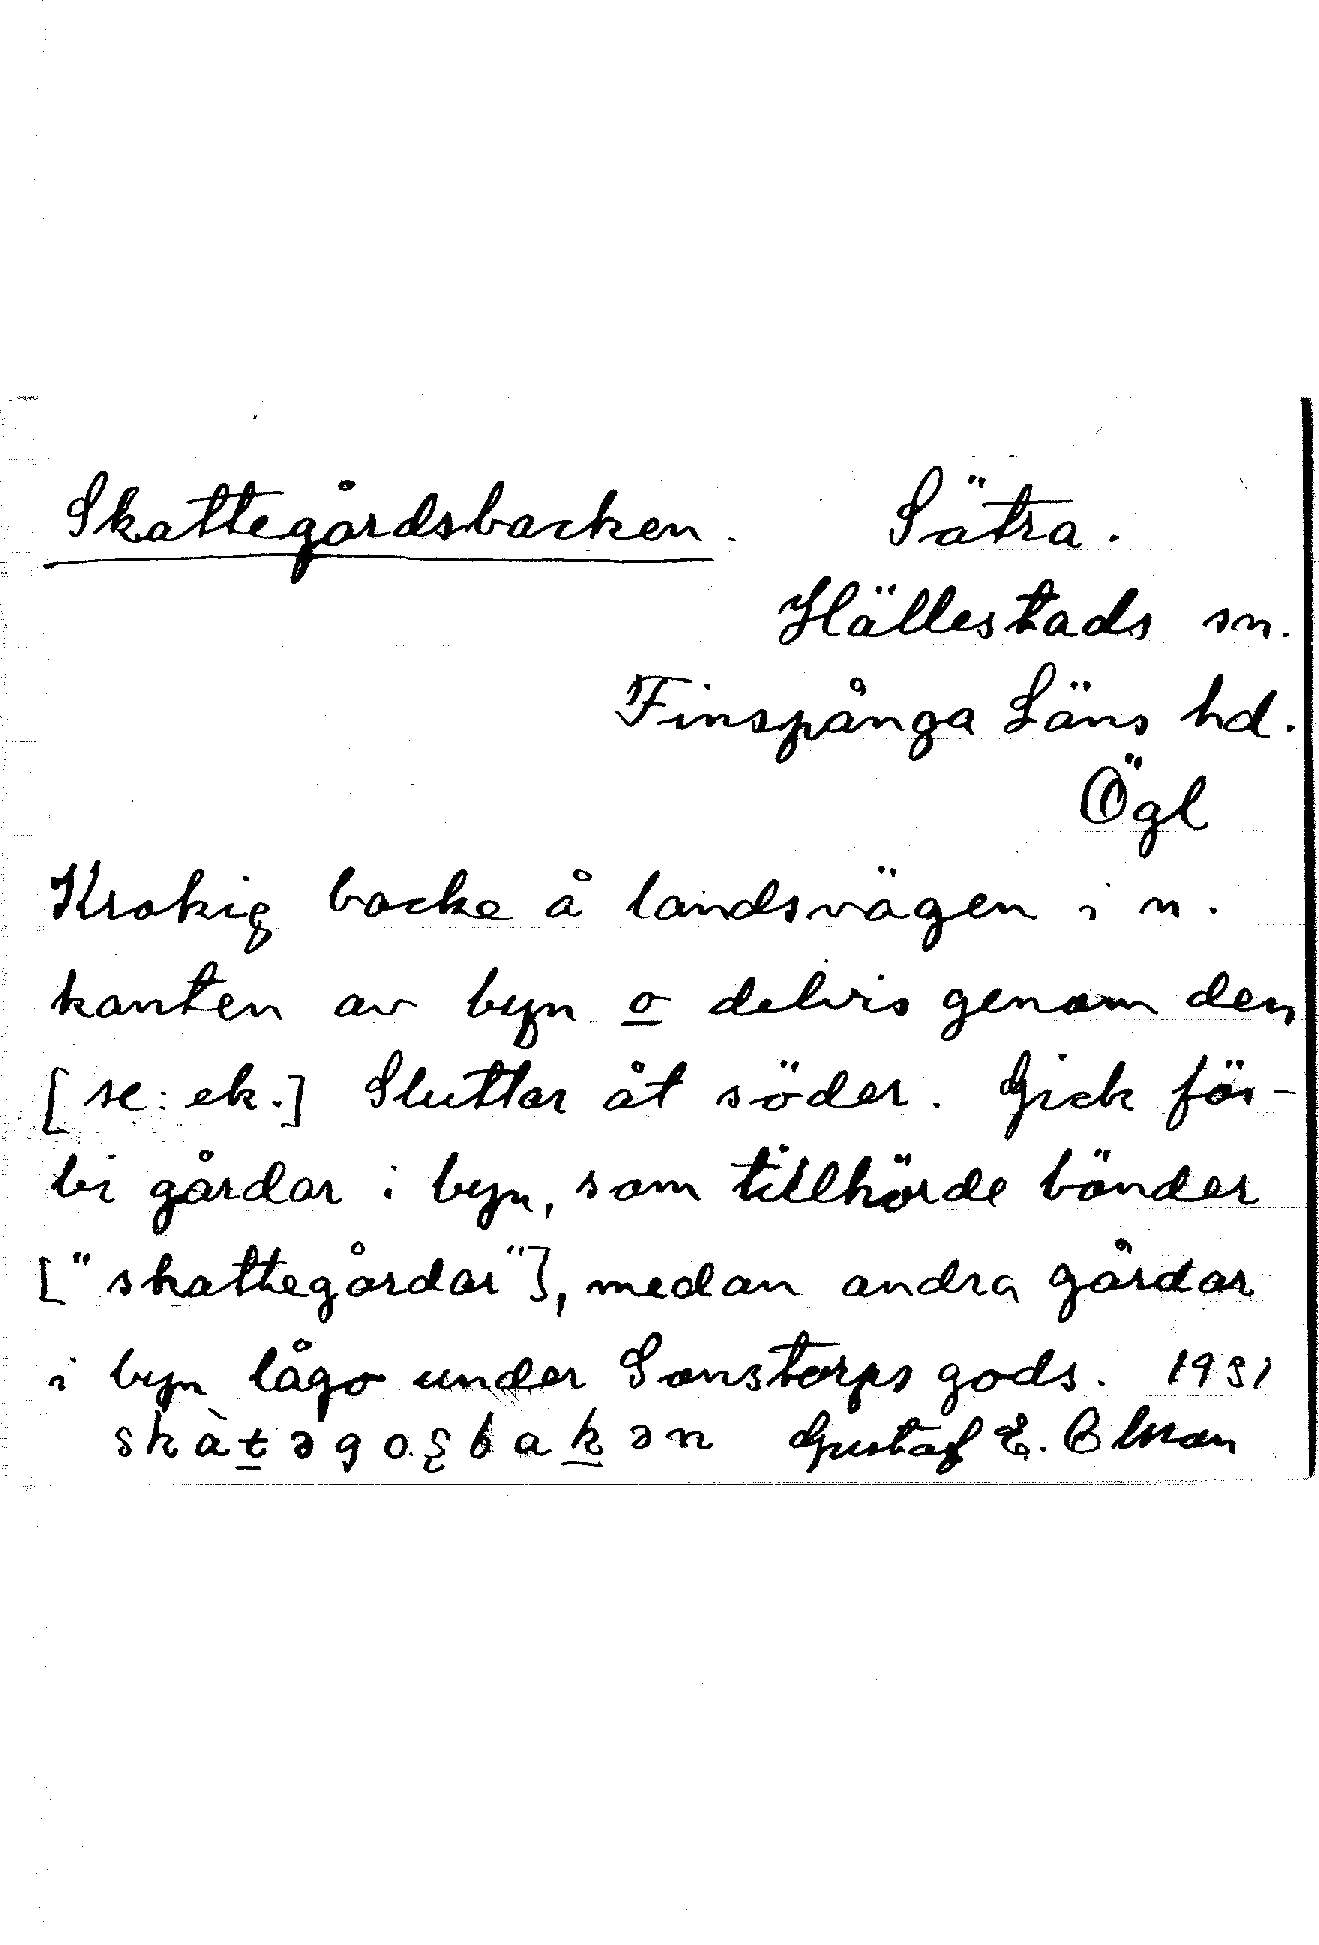 Skattegårdsbacken. Sätra.
Hällestads sn.
Finspånga Läns hd.
Ögl
Krokig backe å landsvägen i n.
kanten av byn o delvis genom den
[se: ek.] Sluttar åt söder. Gick för-
bi gårdar i byn, som tillhörde bönder
["skattegårdar"], medan andra gårdar
i byn lågo under Sonstorps gods. 1931
skàtəgoʂbakən Gustaf E.